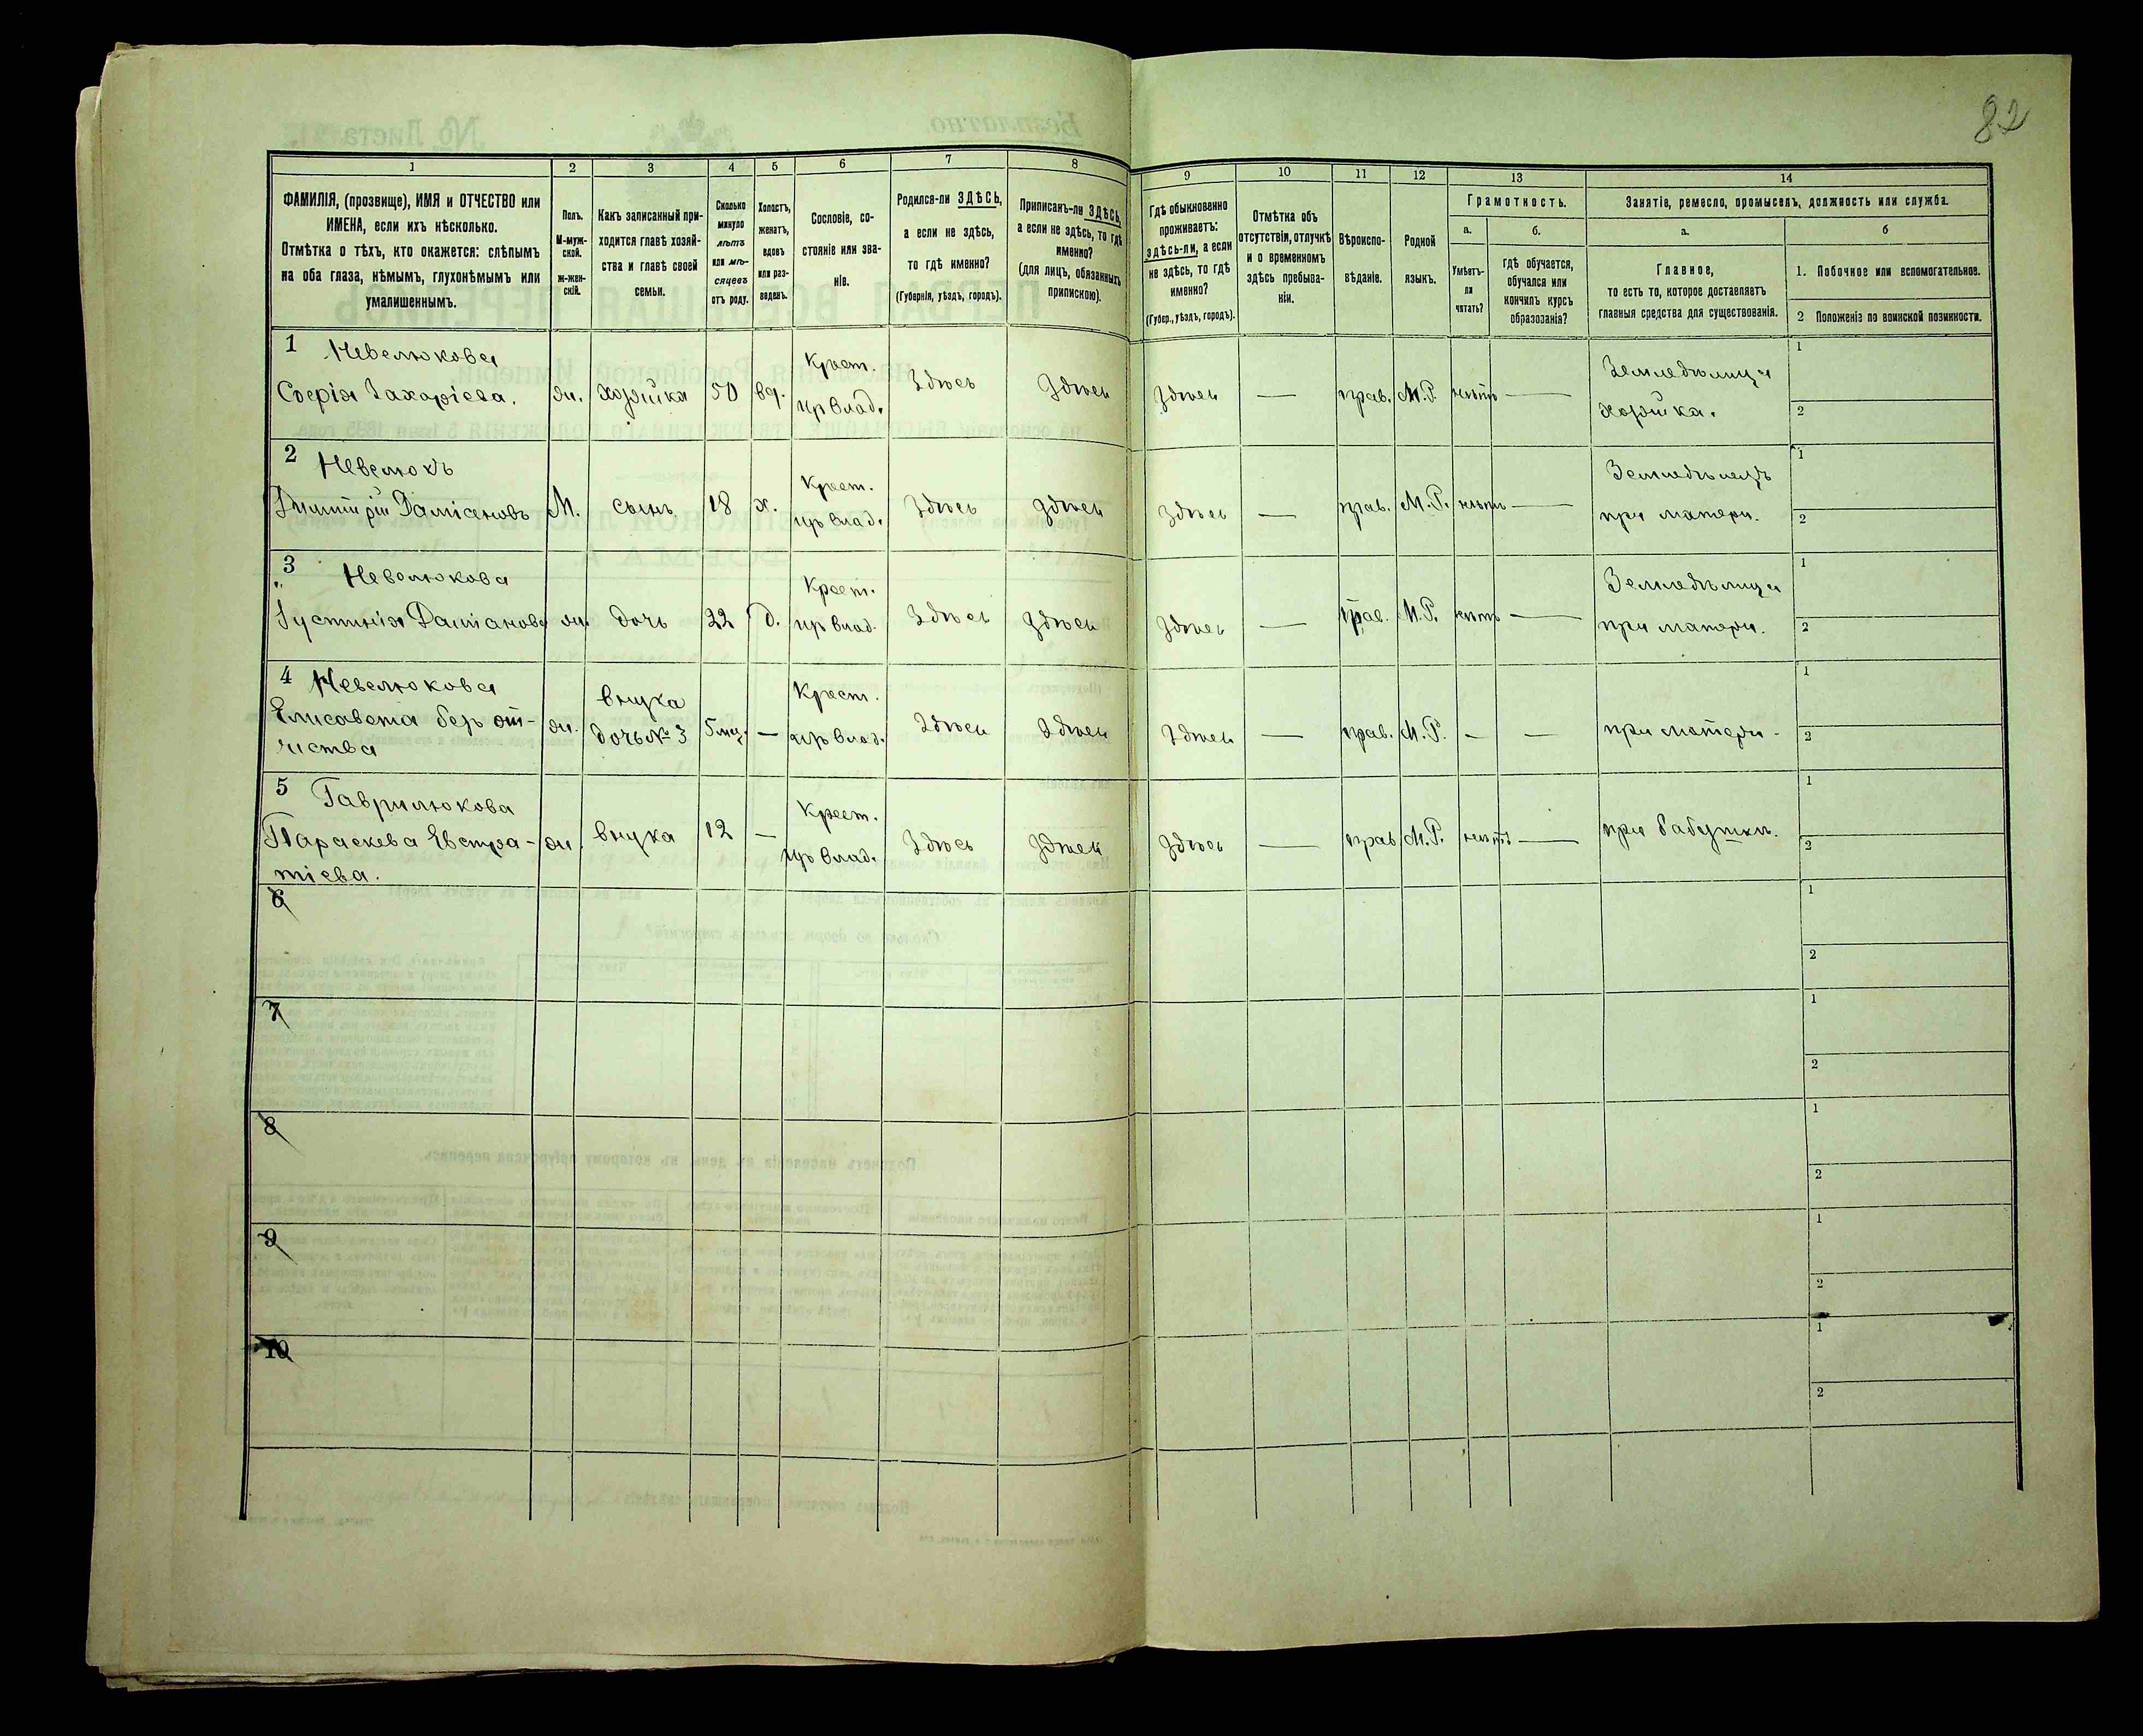 82
1
2
3
4
5
6
7
8
9
10
11
12
13
14
ФАМИЛІЯ, (прозвище), ИМЯ и ОТЧЕСТВО или
ИМЕНА, если ихъ нѣсколько.
Отмѣтка о тѣхъ, кто окажется: слѣпымъ
на оба глаза, нѣмымъ, глухонѣмымъ или
умалишеннымъ.
Полъ.
М-муж-
ской.
ж-жен-
скій.
Какъ записанный при-
ходится главѣ хозяй-
ства и главѣ своей
семьи.
Сколько
минуло
лѣтъ
или мѣ-
сяцевъ
отъ роду.
Холостъ,
женатъ,
вдовъ
или раз-
веденъ.
Сословіе, со-
стояніе или зва-
ніе.
Родился-ли ЗДѢСЬ,
а если не здѣсь,
то гдѣ именно?
(Губернія, уѣздъ, городъ).
Приписанъ-ли ЗДѢСЬ,
а если не здѣсь, то гдѣ
именно?
(для лицъ, обязанныхъ
припискою).
Гдѣ обыкновенно
проживаетъ:
здѣсь-ли, а если
не здѣсь, то гдѣ
именно?
(Губер., уѣздъ, городъ).
Отмѣтка объ
отсутствіи, отлучкѣ
и о временномъ
здѣсь пребыва-
ніи.
Вѣроиспо-
вѣданіе.
Родной
языкъ.
Грамотность.
а.
б.
Умѣетъ-
ли
читать?
гдѣ обучается,
обучался или
кончилъ курсъ
образованія?
Занятіе, ремесло, промыселъ, должность или служба.
а.
б
Главное,
то есть то, которое доставляетъ
главныя средства для существованія.
1. Побочное или вспомогательное.
2 Положеніе по воинской повинности.
1 Невелюкова
Софія Захаріева.
ж.
хозяйка
50
вд.
Крест.
изъ влад.
Здѣсь
Здѣсь
Здѣсь
—
прав.
М.Р.
нѣтъ
—
Земледѣлица
хозяйка.
1
2
2 Невелюкъ
Димитрій Даміановъ
М.
сынъ
18
х.
Крест.
изъ влад.
Здѣсь
Здѣсь
Здѣсь
—
прав.
М.Р.
нѣтъ
—
Земледѣлецъ
при матери.
1
2
3 Невелюкова
Іустинія Даміанова
ж.
дочь
22
д.
Крест.
изъ влад.
Здѣсь
Здѣсь
Здѣсь
—
прав.
М.Р.
нѣтъ
—
Земледѣлица
при матери.
1
2
4 Невелюкова
Елисавета безъ от-
чества
ж.
внука
дочь № 3
5 мц.
—
Крест.
изъ влад.
Здѣсь
Здѣсь
Здѣсь
—
прав.
М.Р.
—
—
при матери.
1
2
5 Гаврилюкова
Параскева Евстра-
тіева.
ж.
внука
12
—
Крест.
изъ влад.
Здѣсь
Здѣсь
Здѣсь
—
прав.
М.Р.
нѣтъ
—
при бабушкѣ.
1
2
6
1
2
7
1
2
8
1
2
9
1
2
10
1
2